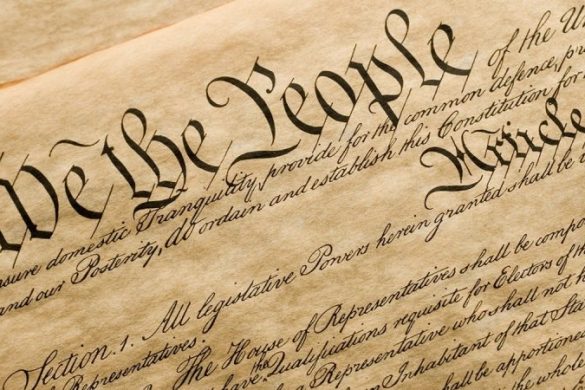 We the People of the U
nsure domestic Tranquility, provide for the common defence, pr
and our Posterity, do ordain and establish this Constitution for
Article
Section. 1. All legislative Powers herein granted shall be
Representatives.
The House of Representatives shall be compo
have the Qualifications requisite for Electors of the
a Representative who shall not h
Inhabitant of that Sta
shall be apportione
the whole